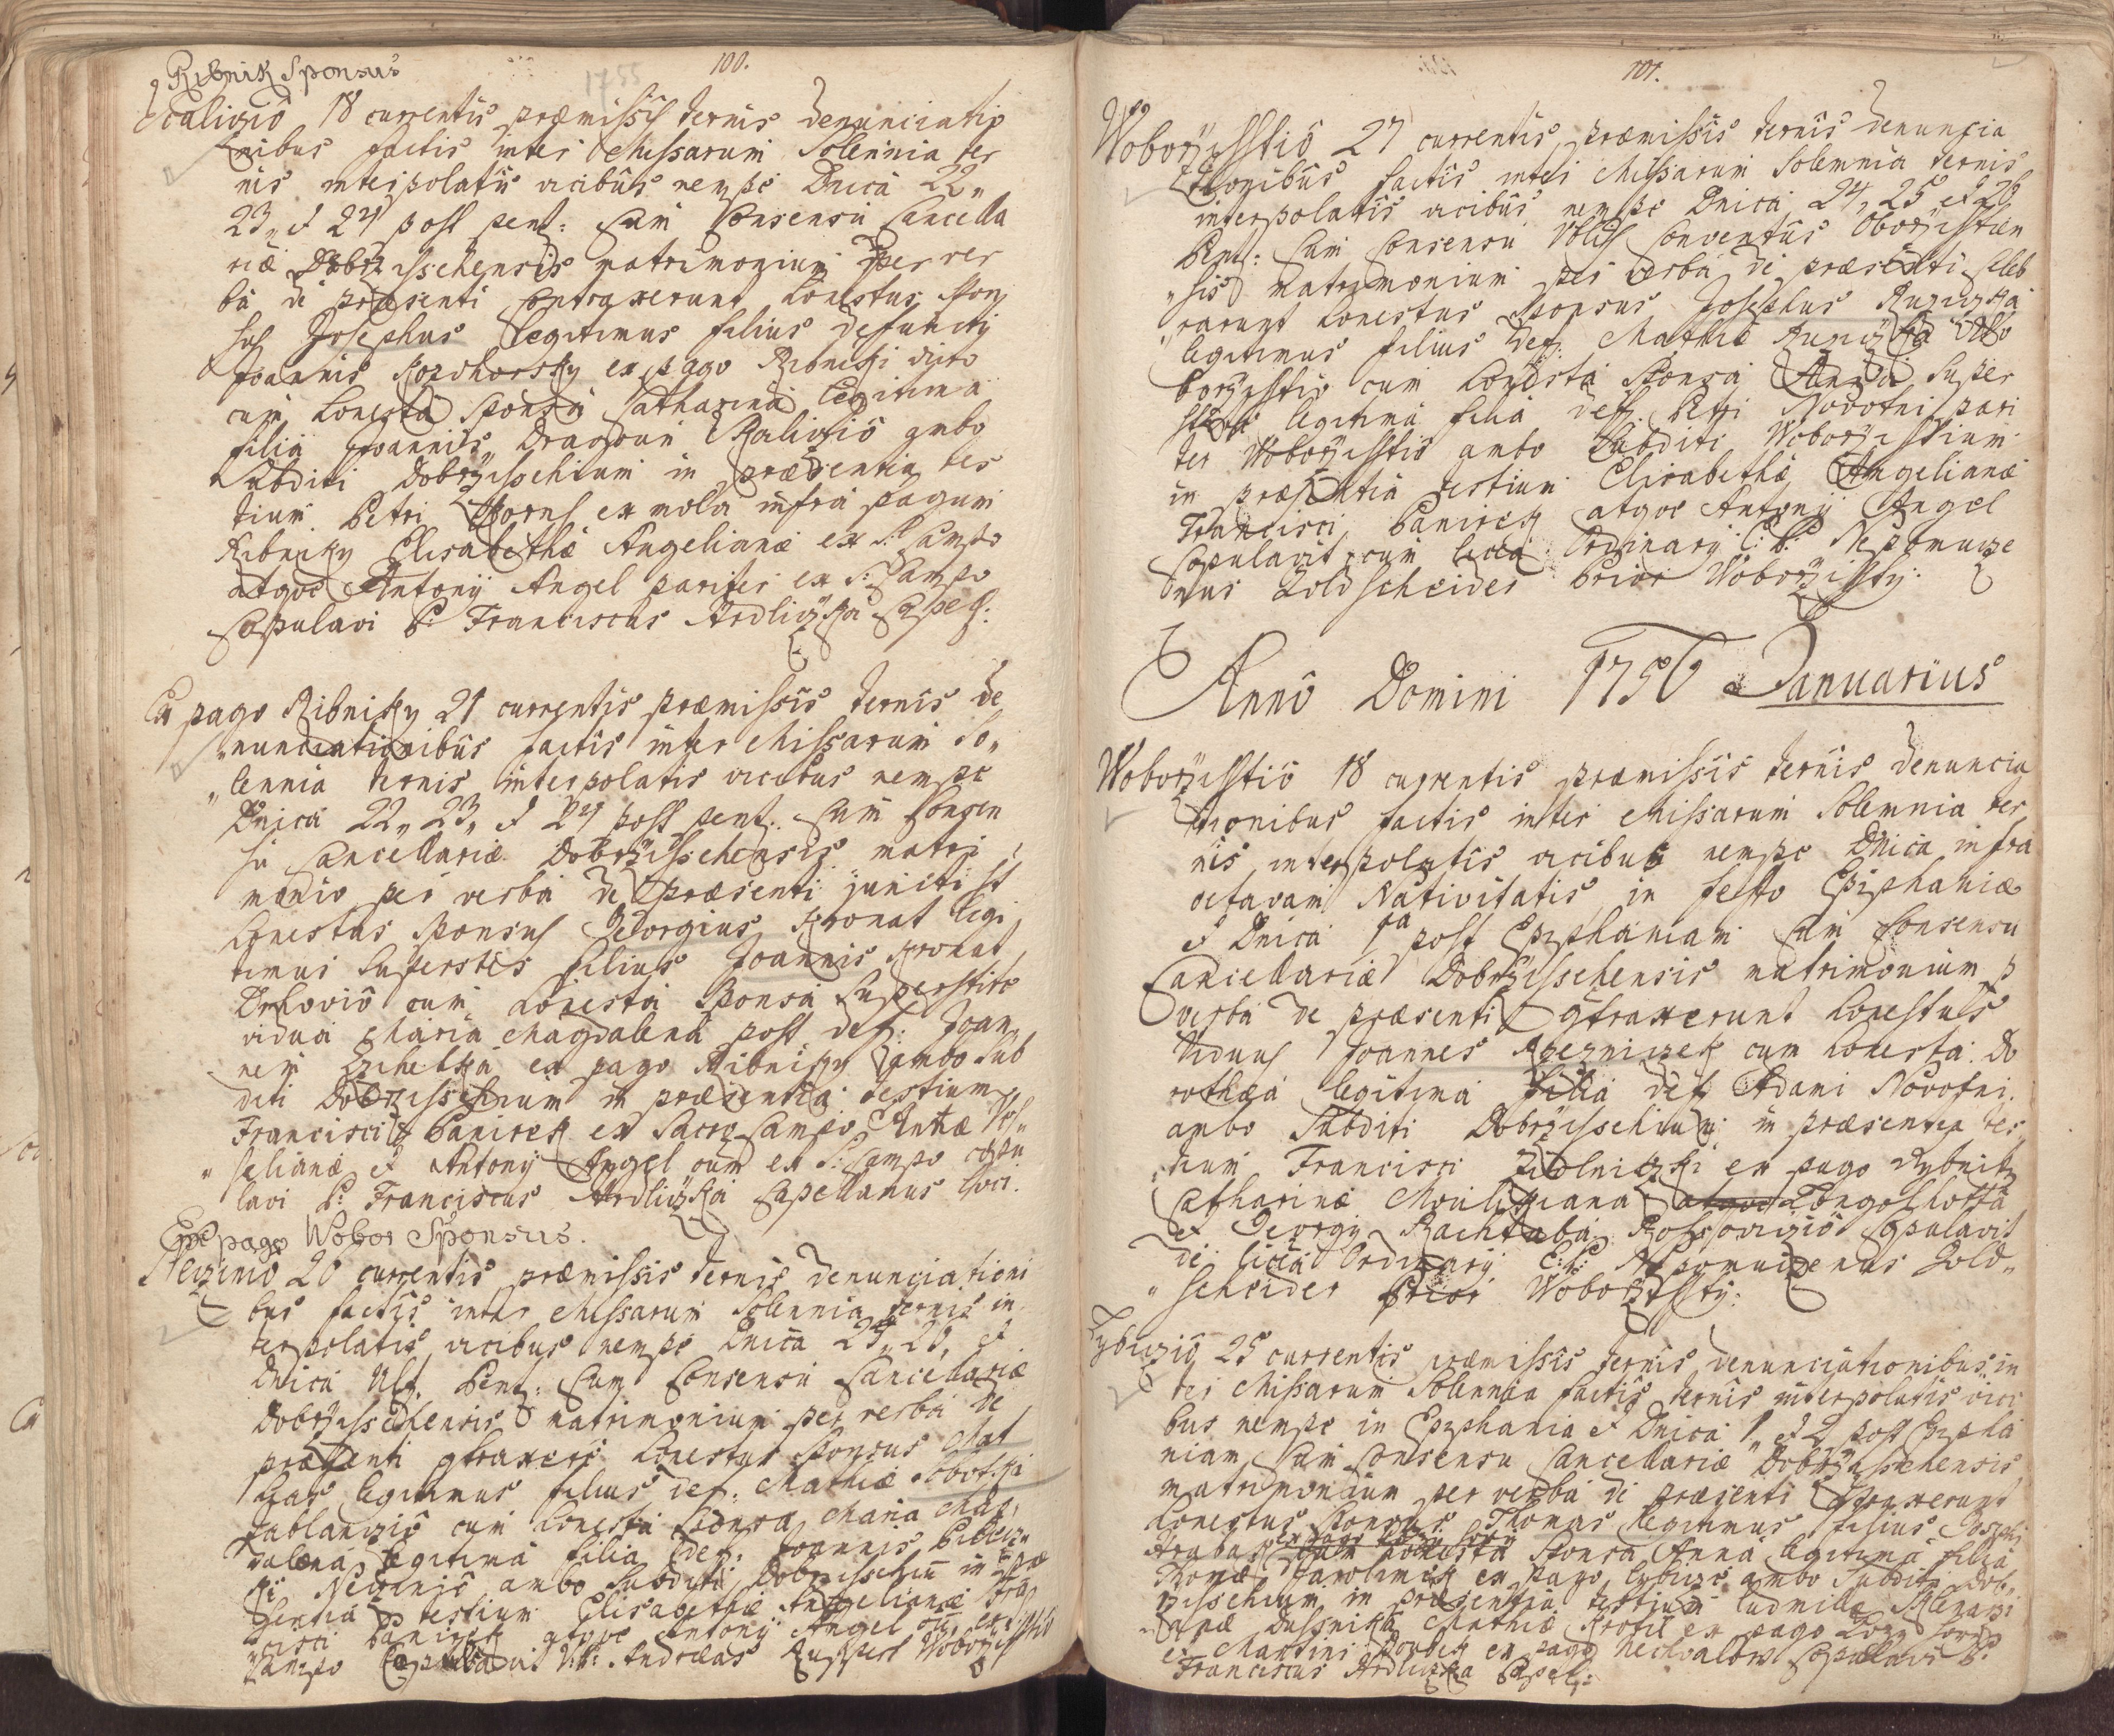 Ribnik Sponsus
100.
1755
Scalizio 18 currentis præmissis ternis denunciatio
nibus factis inter Missarum Solennia ter
nis interpolatis vicibus nempe Dnica 22,,
23,, et 24 post pent: Cum Consensu Cancella
riæ Dobrzisschensis matrimonium per ver
ba de præsenti contraxerunt honestus spon
sus Josephus legitimus filius defuncti
Joannis ex pago Ribniki dicto
cum honesta Sponsa Catharina legitima
filia Joannis Dragoun Skalizio ambo
Subditi Dobrzisschium in præsentia tes
tium Petri ex mola infra pagum
Ribniky Elisabethæ Angelianæ ex S: Campo
atque Antonij Angel pariter ex S: Campo
Copulavi P: Franciscus Hrdliczka Capel:
Ex pago Ribniky 21 currentis præmissis ternis de
nunciationibus factis inter Missarum So,,
,,lennia ternis interpolatis vicibus nempe
Dnica 22,, 23,, et 24 post pent: Cum Consen
su Cancellariæ Dobrzisschensis matri
monio per verba de præsenti juncti st
honestus Sponsus Georgius Kronat legi
timus Superstes filius Joannis Kronat
Drhovio cum honesta Sponsa Superstite
vidua Maria Magdalena post def: Joan
nem ex pago Ribniky ambo Sub
diti Dobrzisschium in præsentia testium
Francisci Panirek ex Sacro Campo Annæ
,,selianæ et Antonij Angel oum ex S: Campo copu
lavi P: Franciscus Hrdliczka Capellanus loci.
Ex pago Wobor Sponsus.
Neczino 26 currentis præmissis ternis denunciationi
bus factis inter Missarum Solennia ternis in
terpolatis vicibus nempe Dnica 24,, 25,, et
Dnica Ult. Pent: Cum Consensu Cancellariæ
Dobrzisschensis matrimonium per verba de
præsenti contraxere honestus Sponsus Mat
hias legitimus filius def: Mathiæ Sobotka
Jablanizio cum honesta Sponsa Maria Mag
dalena legitima filia def: Joannis
Neczinio ambo Subditi Dobrzisschiu in præ
sentia testium Elisabethæ Angelianæ Fran
cisci Panirek atque Antonij Angel oum ex Sacro
Campo Copulavit V: P: Andræas Ruppert Woborzist
101.
Woborzisstio 27 currentis præmissis ternis denuncia
tionibus factis inter Missarum Solemnia ternis
interpolatis vicibus nempe Dnica 24, 25 et 26
Pent: Cum Consensu Vblis Conventus Oborzistien
,,sis matrimonium per verba de præsenti celeb
rarunt honestus Sponsus Josephus Ruziczka
legitimus filius def: Mathiæ Ruziczka Wo
borzistio cum honesta Sponsa Anna Super
stite legitima filia def: Petri Novotni pari
ter Woborzistio ambo Subditi Woborzistium
in præsentia testium Elisabethæ Angelianæ
Francisci Panirek atque Antonij Angel
Copulavit cum licia Ordinarij P: Nepomuce
nus Goldscheider Prior Woborzisty.
Anno Domini 1756 Januarius
Woborzisstio 18 currentis præmissis ternis denuncia
tionibus factis inter Missarum Solemnia ter
nis interpolatis vicibus nempe Dnica infra
octavam Nativitatis in festo Epiphaniæ
et Dnica 1ma post Epiphaniam Cum Consensu
Cancellariæ Dobrzisschensis matrimonium p
verba de præsenti contraxerunt honestus
Viduus Joannes Rzezniczek cum honesta Do
rothæa legitima filia def Adami Novotni.
ambo Subditi Dobrzisschium in præsentia tes
tium Francisci ex pago Rybnik
Catharinæ
et Georgij Copulavit
de licia Ordinarij Nepomucenus Gold,,
,,scheider Prior Woborzisty:
Lybiczio 25 currentis præmissis ternis denunciationibus in
ter Missarum Solennia factis ternis interpolatis vici
bus nempe in Epiphania et Dnica 1,, et 2 post Epipha
niam Cum Consensu Cancellariæ Dobrzisschensis
matrimonium per verba de præsenti contraxerunt
honestus Sponsus Thomas legitimus filius Josephi
cum honesta Sponsa Anna legitima filia
Thomæ Jarolimek ex pago Lybicze ambo Subditi Dob,,
rzisschium in præsentia testium Ludmilla
Mathiæ Krotil ex pago
et Martini ex pago Nechvalow Copulavi P:
Franciscus Hrdliczka Capel: